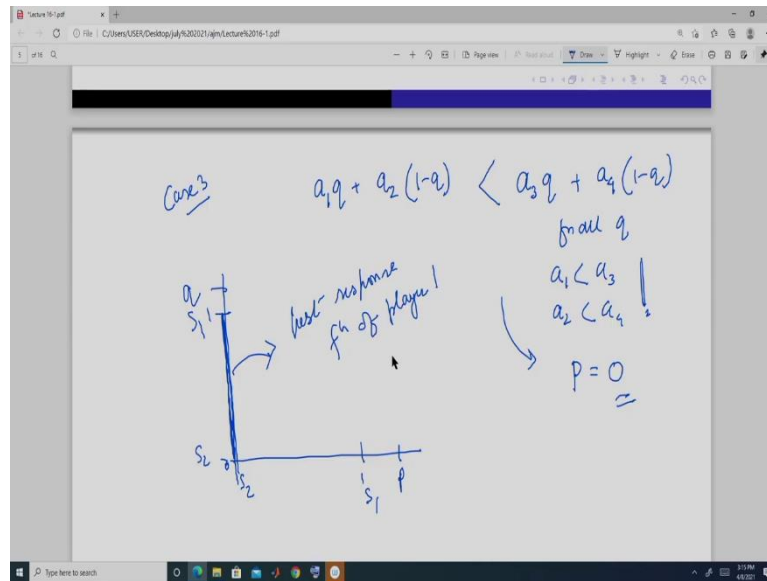 "Lecture 16-1.pdf
File | C:/Users/USER/Desktop/july%202021/ajm/Lecture%2016-1.pdf
5 of 16
Page view
Read aloud
Draw
Highlight
Erase
Case 3
a₁q + a₂(1-q) < a₃q + a₄(1-q)
for all q
a₁ < a₃
a₂ < a₄
p = 0
best response
fn of player 1
q
S₁ 1
S₂ 0
S₂
1
S₁
p
Type here to search
3:15 PM
4/8/2021